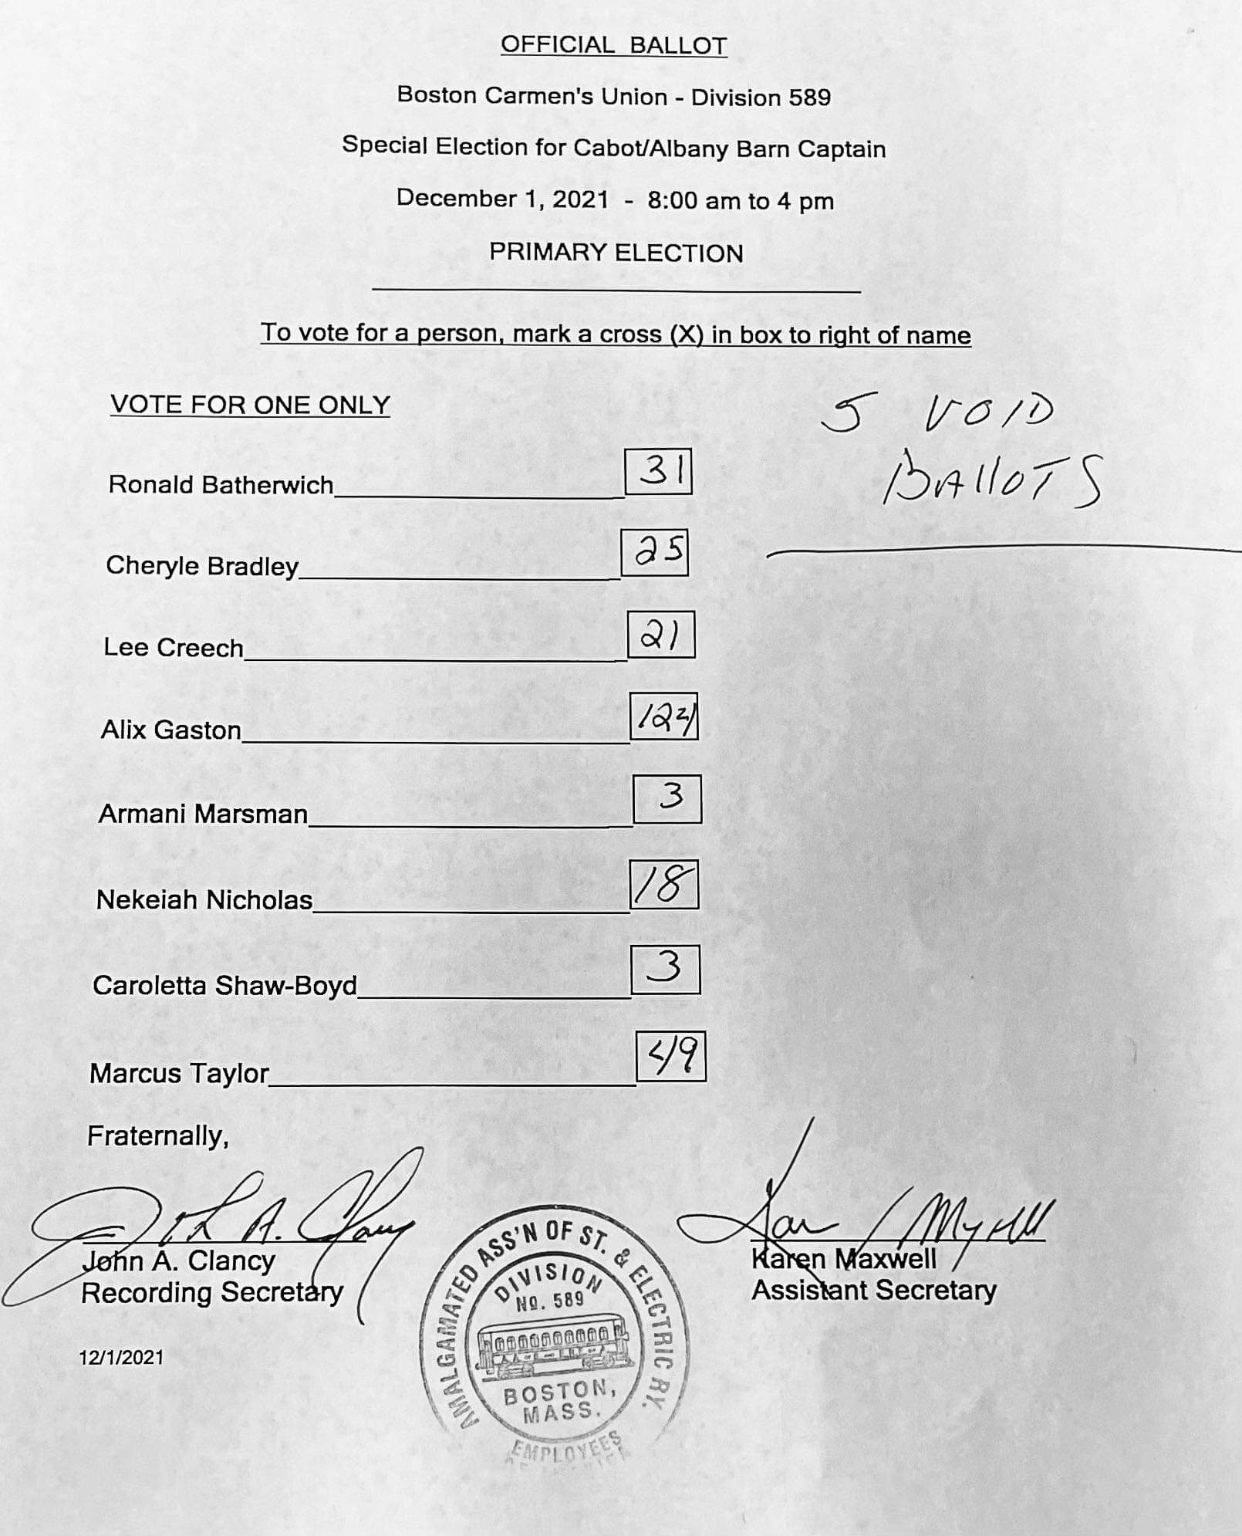 OFFICIAL BALLOT
Boston Carmen's Union - Division 589
Special Election for Cabot/Albany Barn Captain
December 1, 2021 - 8:00 am to 4 pm
PRIMARY ELECTION
To vote for a person, mark a cross (X) in box to right of name
VOTE FOR ONE ONLY
5 VOID
BALLOTS
Ronald Batherwich 31
Cheryle Bradley 25
Lee Creech 21
Alix Gaston 124
Armani Marsman 3
Nekeiah Nicholas 18
Caroletta Shaw-Boyd 3
Marcus Taylor 49
Fraternally,
John A. Clancy
John A. Clancy
Recording Secretary
12/1/2021
Karen Maxwell
Karen Maxwell
Assistant Secretary
AMALGAMATED ASS'N OF ST. & ELECTRIC RY.
DIVISION
NO. 589
BOSTON,
MASS.
EMPLOYEES